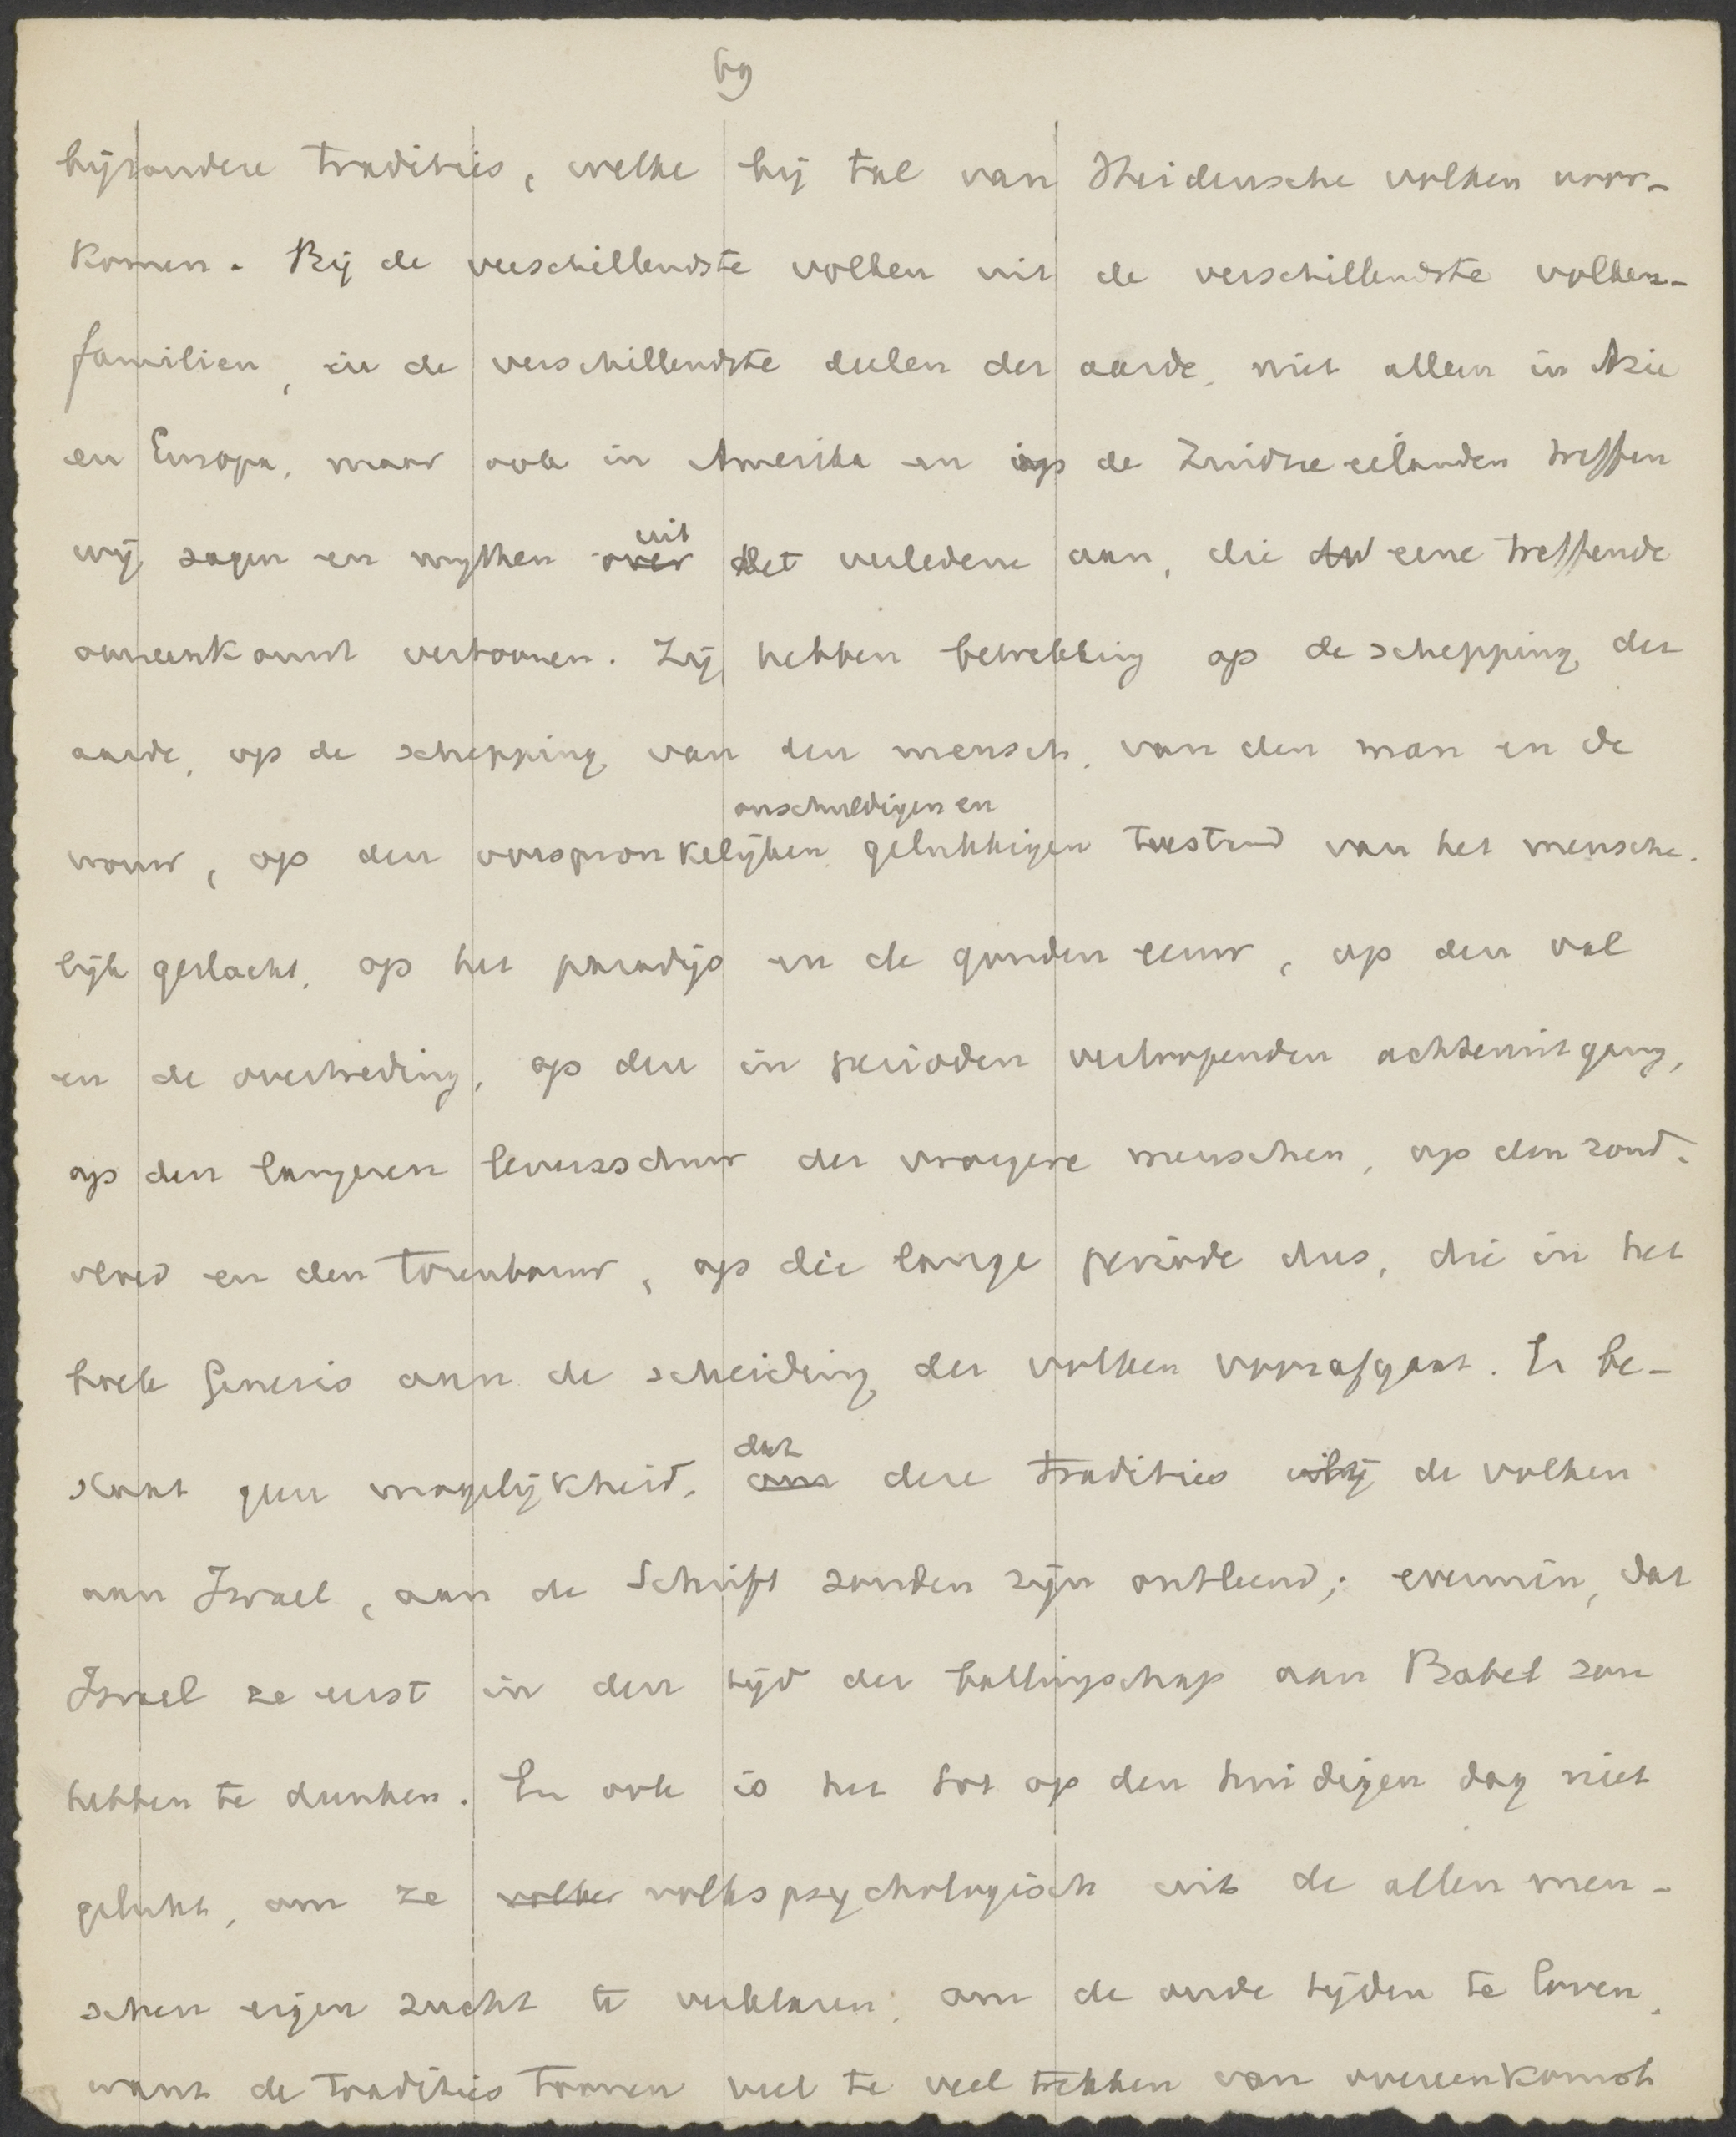 69
bijzondere tradities, welke bij tal van Heidensche volken voor-
komen. Bij de verschillendste volken uit de verschillendste volken-
familien, in de verschillendste deelen der aarde, niet alleen in Azie
en Europa, maar ook in Amerika en op de Zuidzee eilanden treffen
uit
wij sagen en mythen over het verledene aan, die eene treffende
overeenkomst vertoonen. Zij hebben betrekking op de schepping der
aarde, op de schepping van den mensch, van den man en de
onschuldigen en
vrouw, op den oorspronkelijken gelukkigen toestand van het mensche-
lijk geslacht, op het paradijs en de gouden eeuw, op den val
en de overtreding, op den in perioden verloopenden achteruitgang,
op den langeren levensduur der vroegere menschen, op den zond-
vloed en den torenbouw, op die lange periode dus, die in het
boek Genesis aan de scheiding der volken voorafgaat. Er be-
dat
staat geen mogelijkheid, om deze tradities bij de volken
aan Israel, aan de Schrift zouden zijn ontleend; evenmin, dat
Israel ze eerst in den tijd der ballingschap aan Babel zou
hebben te danken. En ook is het tot op den huidigen dag niet
gelukt, om ze volken volkspsychologisch uit de allen men-
schen eigen zucht te verklaren, om de oude tijden te loven,
want de tradities toonen veel te veel trekken van overeenkomst